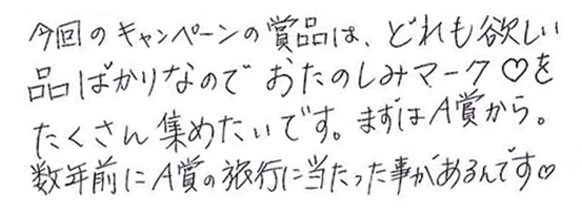 今回のキャンペーンの賞品は、どれも欲しい
品ばかりなのでおたのしみマーク♡を
たくさん集めたいです。まずはA賞から。
数年前にA賞の旅行に当たった事があるんです♡